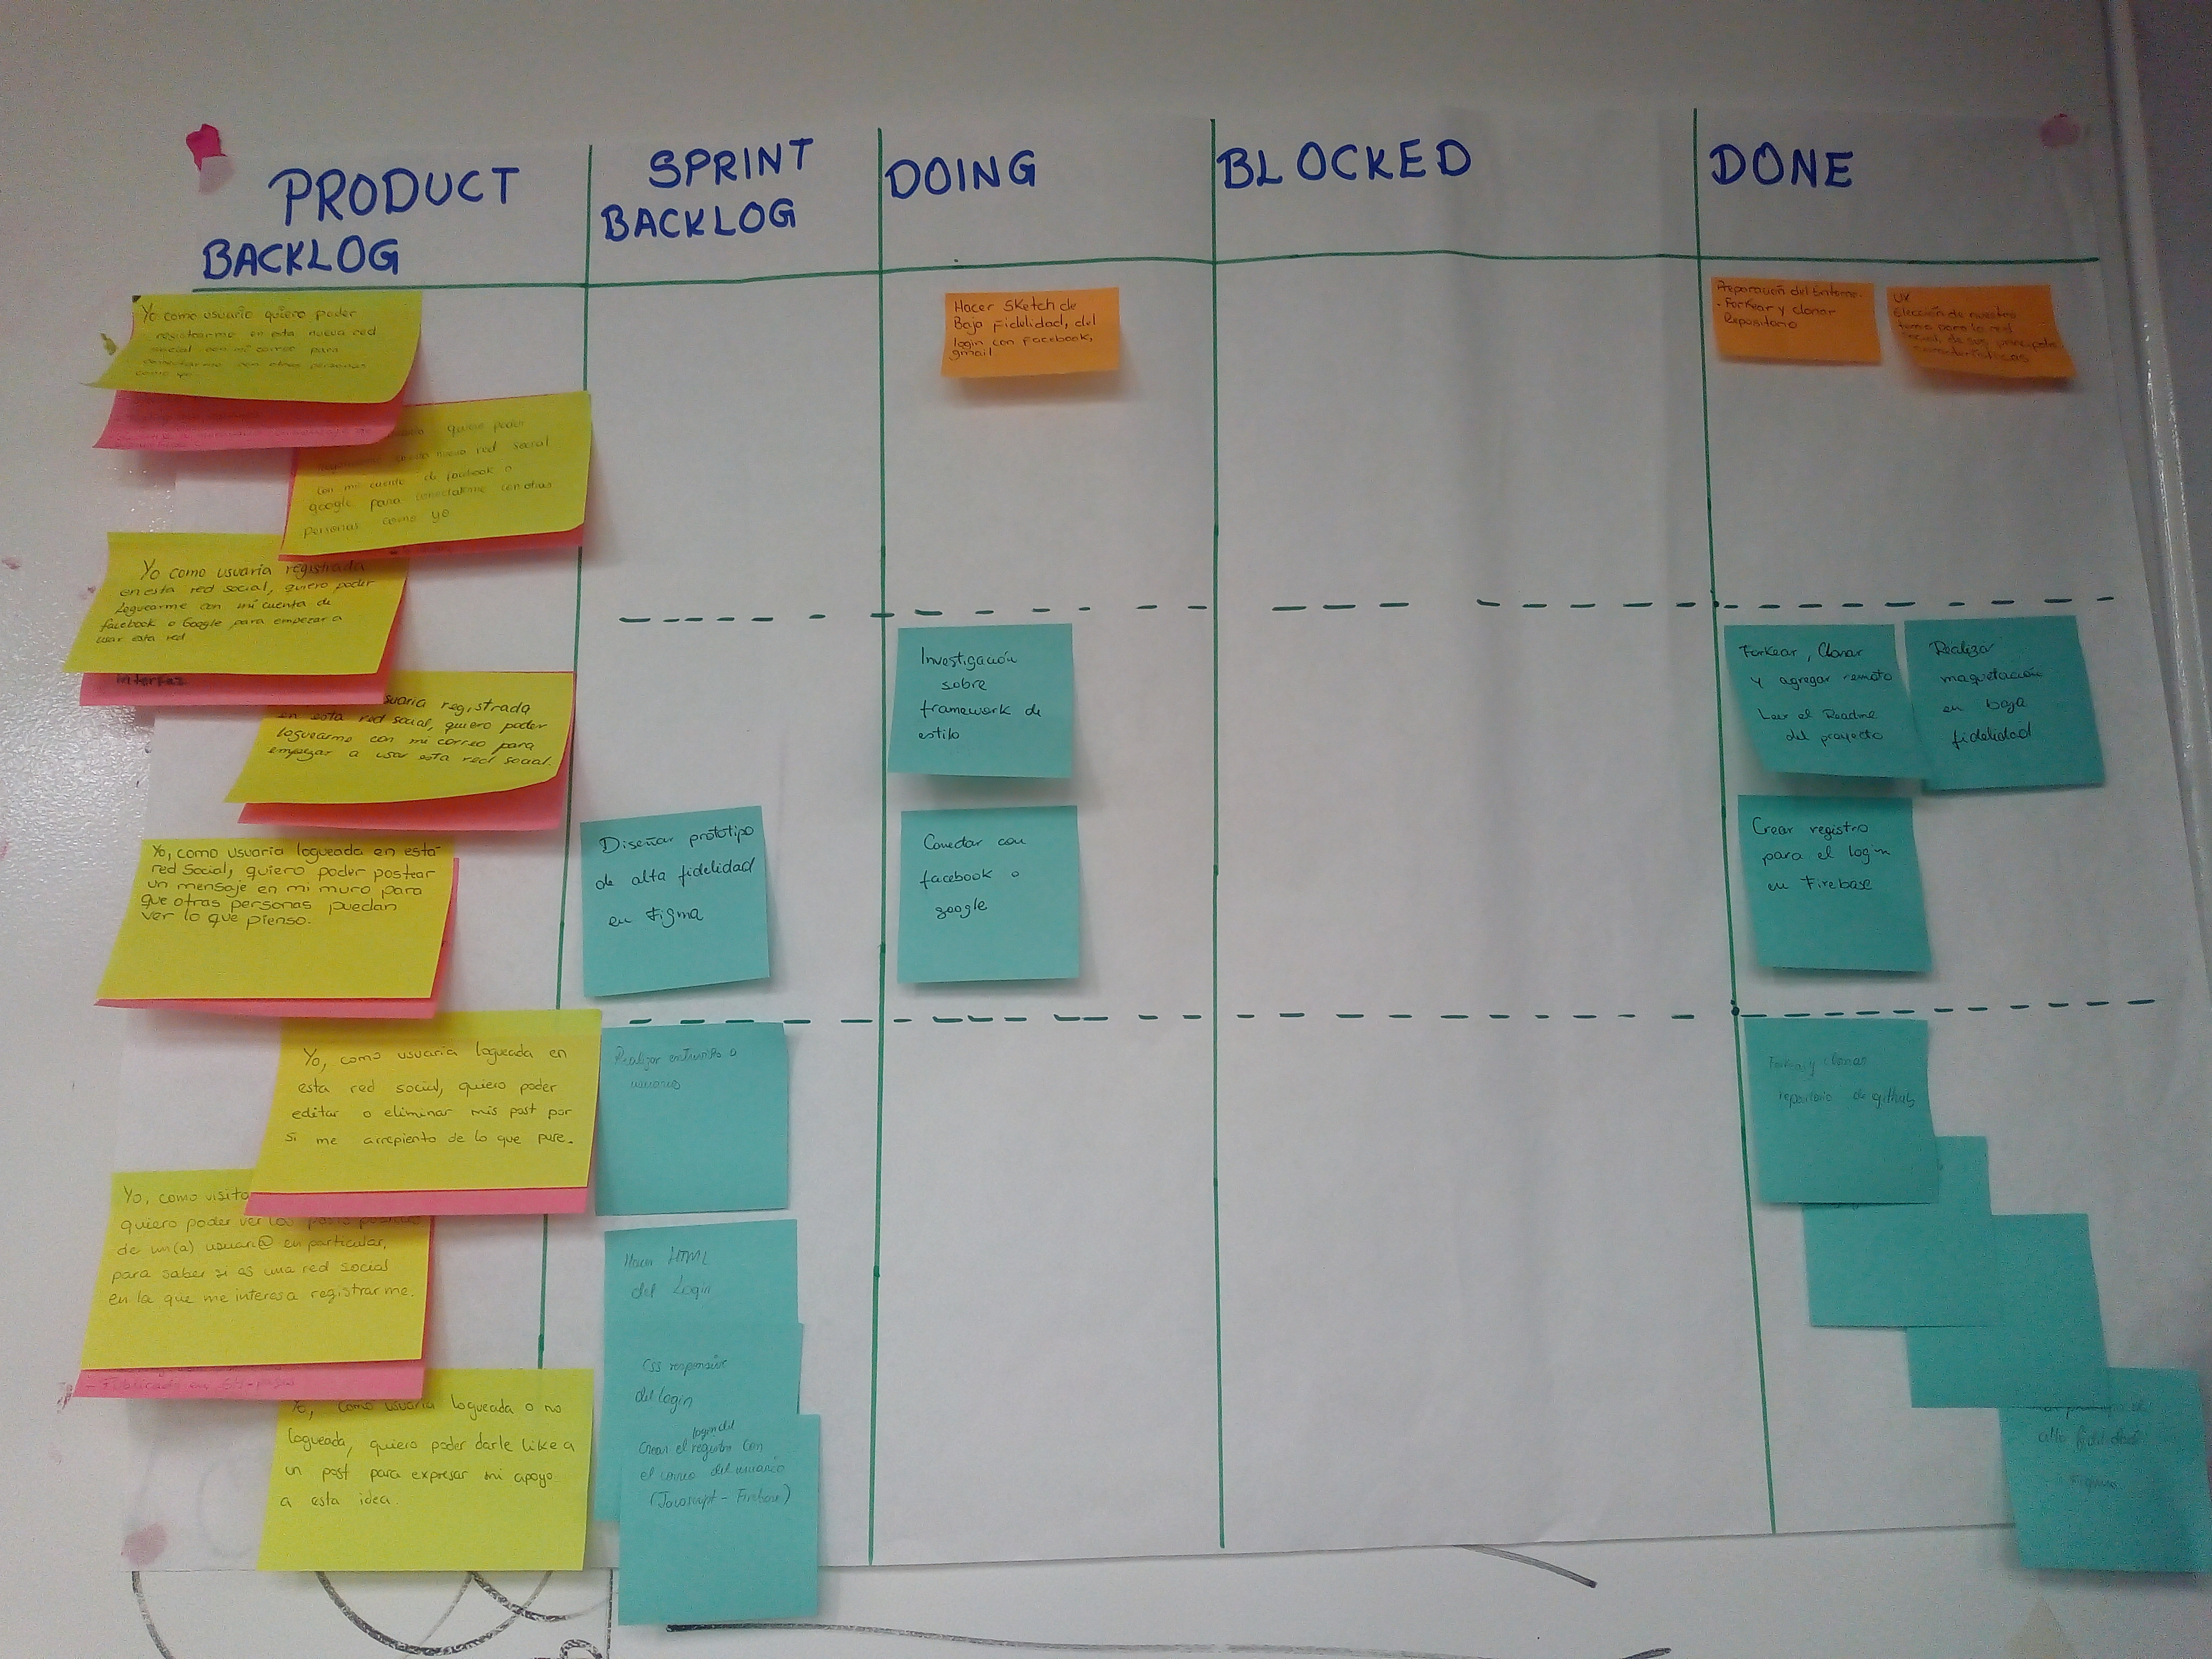 PRODUCT
BACKLOG
SPRINT
BACKLOG
DOING
BLOCKED
DONE
Yo como usuario quiero poder
registrarme en esta nueva red
social con mi correo para
conectarme con otras personas
como yo
quiero poder
nueva red social
con mi cuenta de facebook o
google para conectarme con otras
personas como yo
Yo como usuaria registrada
en esta red social, quiero poder
loguearme con mi cuenta de
facebook o Google para empezar a
usar esta red
interfaz
suaria registrada
en esta red social, quiero poder
loguearme con mi correo para
empezar a usar esta red social.
Yo, como usuaria logueada en esta
red social, quiero poder postear
un mensaje en mi muro para
que otras personas puedan
ver lo que pienso.
Yo, como usuaria logueada en
esta red social, quiero poder
editar o eliminar mis post por
si me arrepiento de lo que puse.
Yo, como visita
quiero poder ver los posts
de un(a) usuari@ en particular,
para saber si es una red social
en la que me interesa registrarme.
Yo, como usuaria logueada o no
logueada, quiero poder darle like a
un post para expresar mi apoyo
a esta idea.
Diseñar prototipo
de alta fidelidad
en Figma
Realizar entrevista a
usuarios
Hacer HTML
del Login
CSS responsive
del login
login del
Crear el registro con
el correo del usuario
(Javascript - Firebase)
Hacer Sketch de
Baja Fidelidad, del
login con Facebook,
gmail
Investigación
sobre
framework de
estilo
Conectar con
facebook o
google
Preparación del Entorno.
- Forkear y clonar
Repositorio
UX
Elección de nuestro
tema para la red
social, de sus principales
características
Forkear, Clonar
y agregar remoto
Leer el Readme
del proyecto
Realizar
maquetación
en baja
fidelidad
Crear registro
para el login
en Firebase
Forkear y clonar
repositorio de github
alta fidelidad
Figma